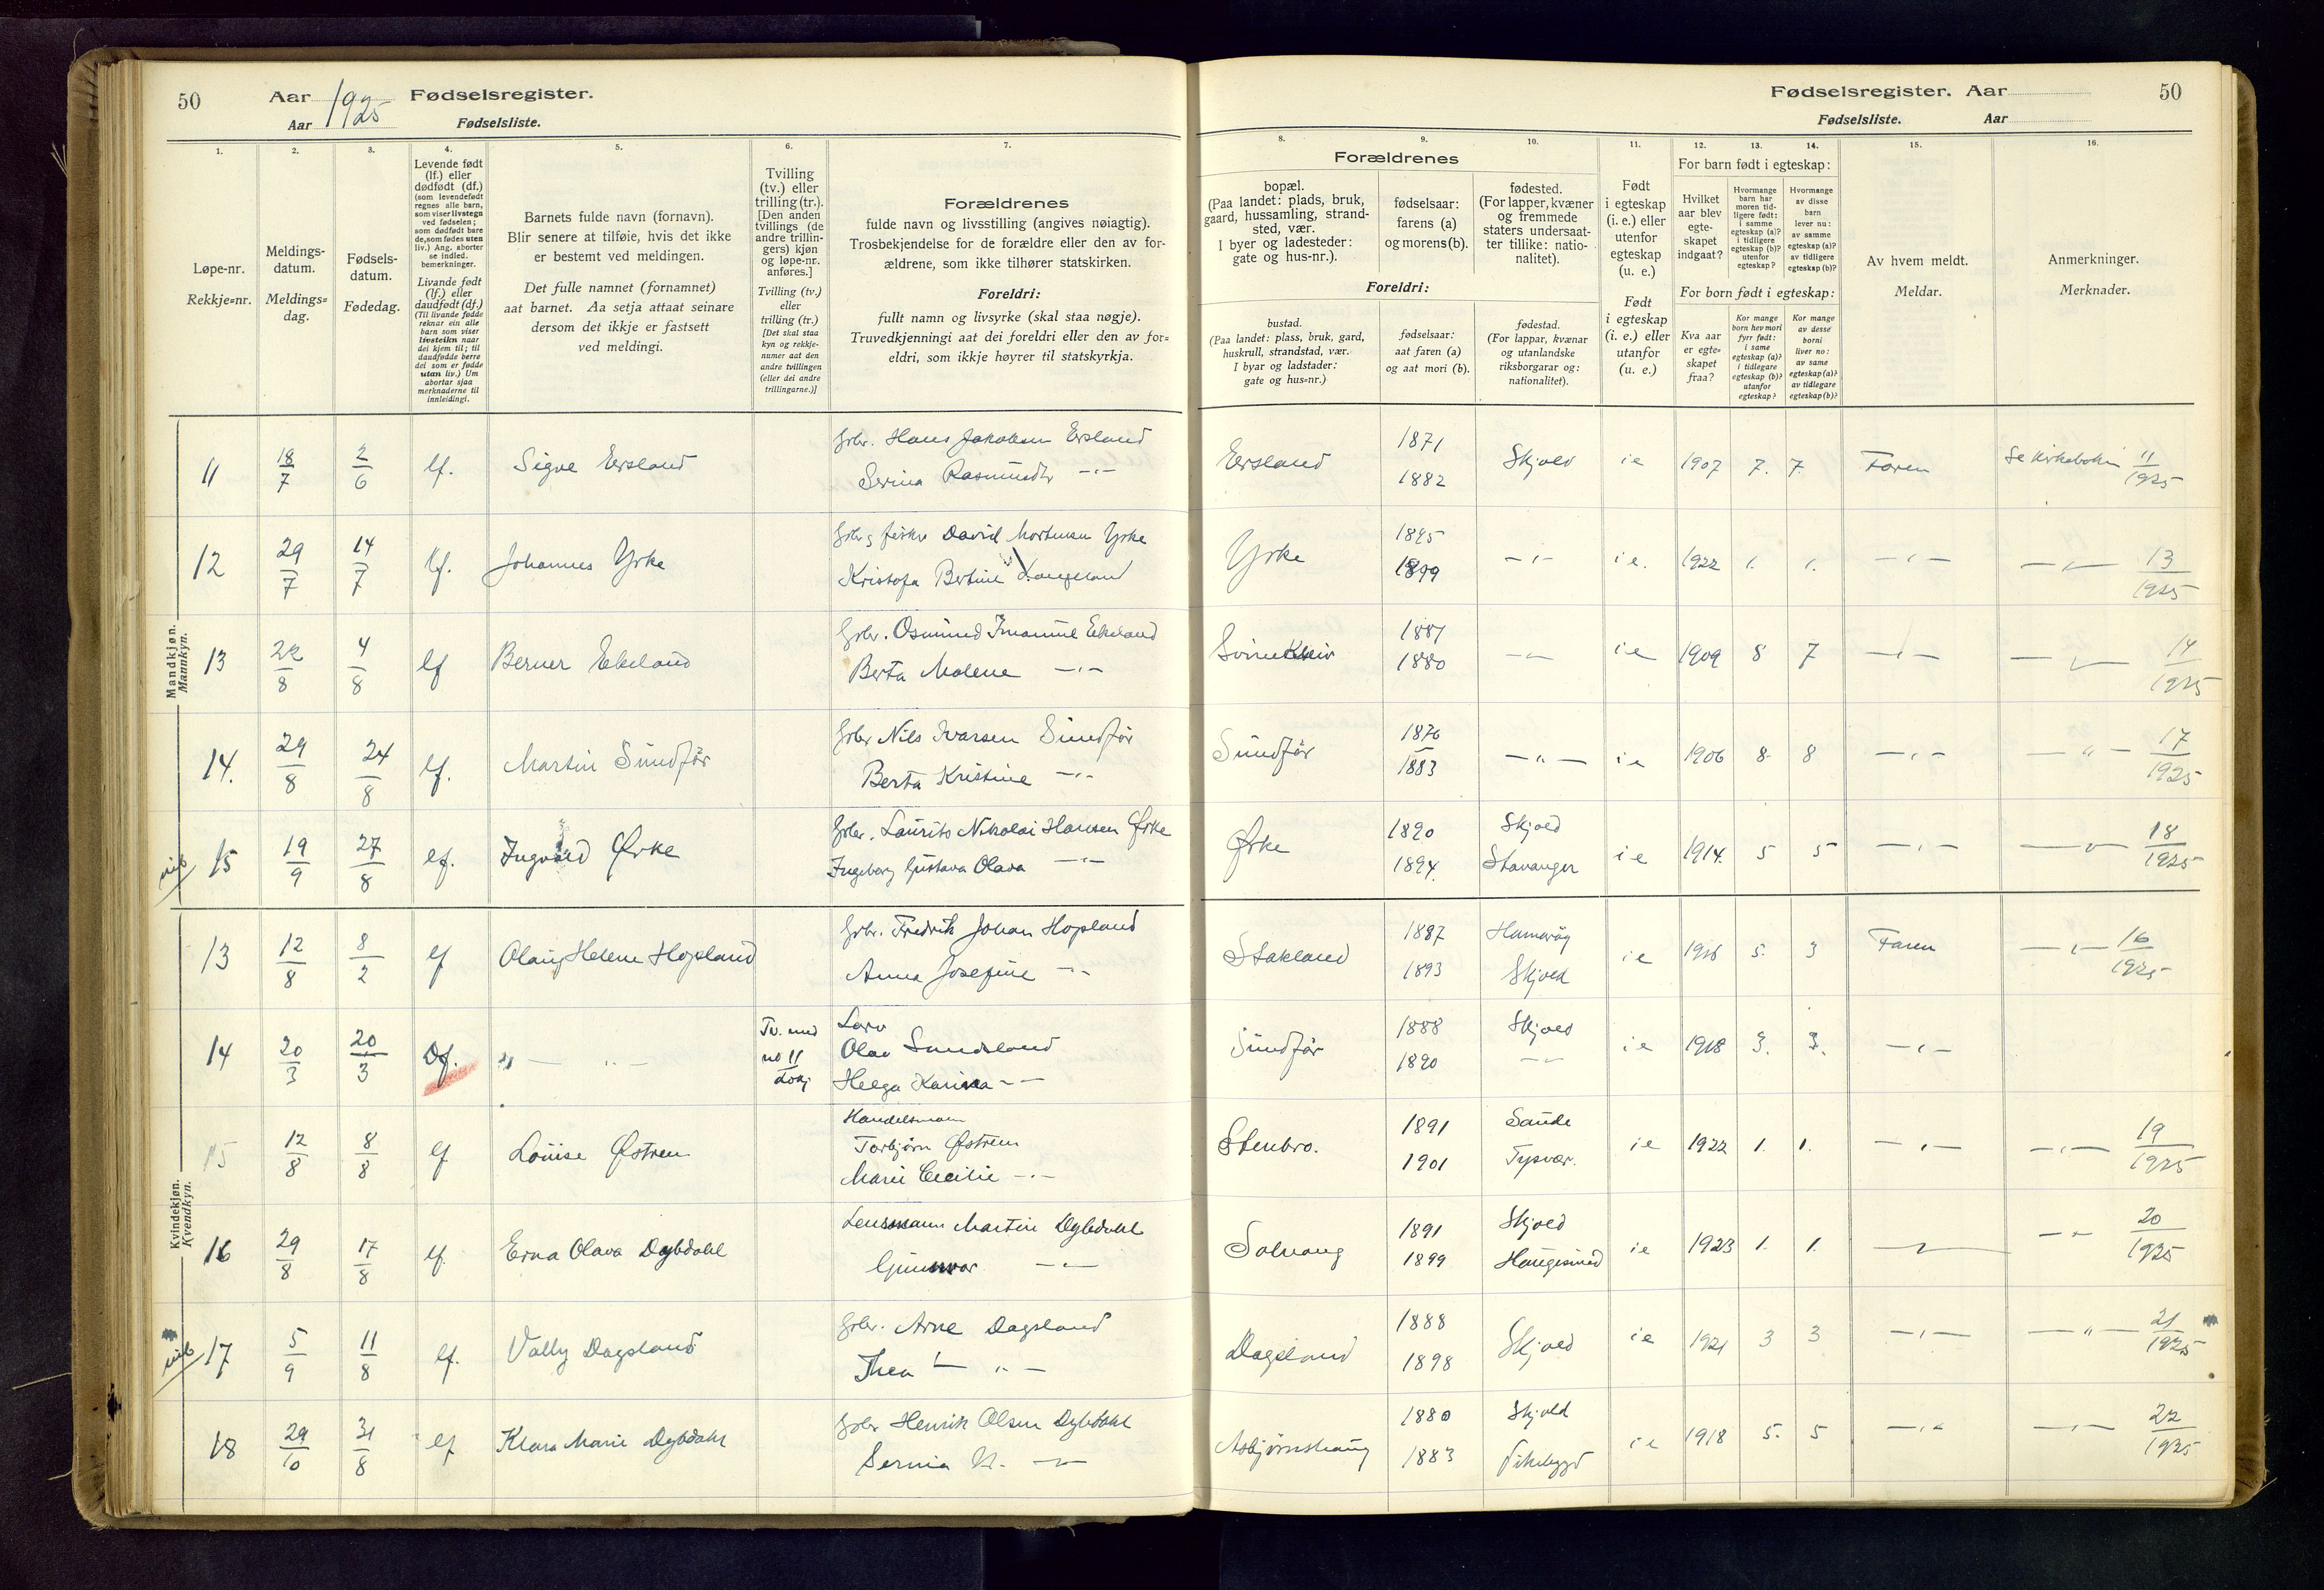 50 Aar 1925 Fødselsregister.
Aar Fødselsliste.
Fødselsregister. Aar 50
Fødselsliste. Aar
1. 2. 3. 4. 5. 6. 7. 8. 9. 10. 11. 12. 13. 14. 15. 16.
Løpe-nr.
Rekkje=nr.
Meldings-
datum.
Meldings=
dag.
Fødsels-
datum.
Fødedag.
Levende født
(lf.) eller
dødfødt (df.)
(som levendefødt
regnes alle barn,
som viser livstegn
ved fødselen;
som dødfødt bare
de, som fødes uten
liv.) Ang. aborter
se indled.
bemerkninger.
Livande født
(lf.) eller
daudfødt (df.)
(Til livande fødde
reknar ein alle
barn som viser
livsteikn naar
dei kjem til; til
daudfødde berre
dei som er fødde
utan liv.) Um
abortar sjaa
merknaderne til
innleidingi.
Barnets fulde navn (fornavn).
Blir senere at tilføie, hvis det ikke
er bestemt ved meldingen.
Det fulle namnet (fornamnet)
aat barnet. Aa setja attaat seinare
dersom det ikkje er fastsett
ved meldingi.
Tvilling
(tv.) eller
trilling (tr.).
[Den anden
tvillings (de
andre trillin-
gers) kjøn
og løpe-nr.
anføres.]
Tvilling (tv.)
eller
trilling (tr.)
[Det skal staa
kyn og rekkje-
numer aat den
andre tvillingen
(eller dei andre
trillingarne.)]
Forældrenes
fulde navn og livsstilling (angives nøiagtig).
Trosbekjendelse for de forældre eller den av for-
ældrene, som ikke tilhører statskirken.
Foreldri:
fullt namn og livsyrke (skal staa nøgje).
Truvedkjenningi aat dei foreldri eller den av for=
eldri, som ikkje høyrer til statskyrkja.
Forældrenes
bopæl.
(Paa landet: plads, bruk,
gaard, hussamling, strand-
sted, vær.
I byer og ladesteder:
gate og hus-nr.).
fødselsaar:
farens (a)
og morens (b).
fødested.
(For lapper, kvæner
og fremmede
staters undersaat-
ter tillike: natio-
nalitet).
Foreldri:
bustad.
(Paa landet: plass, bruk, gard,
huskrull, strandstad, vær.
I byar og ladstader:
gate og hus=nr.)
fødselsaar:
aat faren (a)
og aat mori (b).
fødestad.
(For lappar, kvænar
og utanlandske
riksborgarar og:
nationalitet).
Født
i egteskap
(i. e.) eller
utenfor
egteskap
(u. e.)
Født
i egteskap
(i. e.) eller
utanfor
(u. e.)
For barn født i egteskap:
Hvilket
aar blev
egte-
skapet
indgaat?
Hvormange
barn har
moren tid-
ligere født:
i samme
egteskap (a)?
i tidligere
egteskap (b)?
utenfor
egteskap?
Hvormange
av disse
barn
lever nu:
av samme
egteskap (a)?
av tidligere
egteskap (b)?
For born født i egteskap:
Kva aar
er egte=
skapet
fraa?
Kor mange
born hev mori
fyrr født:
i same
egteskap (a)?
i tidlegare
egteskap (b)?
utanfor
egteskap?
Kor mange
av desse
borni
liver no:
av same
egteskap (a)?
av tidlegare
egteskap (b)?
Av hvem meldt.
Meldar.
Anmerkninger.
Merknader.
Mandkjøn.
Mannkyn.
11 18/7 2/6 lf. Sigve Eersland Gbr. Hans Jakobsen Eersland
Serina Rasmusdtr —"—
Eersland 1871 1882 Skjold i e 1907 7. 7. Faren Se kirkeboken 11/1925
12 29/7 14/7 lf. Johannes Yrke Gbr. g fisker David Mortensen Yrke
Kristofa Bertine Langeland
Yrke 1895 1899 —"— i e. 1922 1. 1. —"— —"— 13/1925
13 22/8 4/8 lf Berner Ekeland Gbr. Osmund Imanuel Ekeland
Berta Malene —"—
1881 1880 —"— i e 1909 8 7 —"— —"— 14/1925
14. 29/8 24/8 lf. Martin Sundfør Gbr Nils Ivarsen Sundfør
Berta Kristine —"—
Sundfør 1876 1883 —"— i e 1906 8. 8 —"— —"— 17/1925
15 19/9 27/8 lf. Ingvald Ørke Gbr. Laurits Nikolai Hansen Ørke
Ingeborg Gustava Olava —"—
Ørke 1890 1894. Skjold Stavanger i e 1914. 5 5 —"— —"— 18/1925
Kvindekjøn.
Kvendkyn.
13 12/8 8/2 lf Olaug Helene Hopland Gbr. Fredrik Johan Hopland
Anna Josefine —"—
Stakland 1887 1893 Skjold i e 1916 5. 3 Faren —"— 16/1925
14 20/3 20/3 Df. " — " — Tv. med no 11
Olav Sundsland
Helga Karina —"—
Sundfør 1888 1890 Skjold —"— i e 1918 3. 3. —"—
15 12/8 8/8 lf Louise Østrem Handelsmann
Torbjørn Østrem
Marie Cecilie —"—
Stenbro. 1891 1901 Sande Tysvær. i e 1922 1. 1. —"— —"— 19/1925
16 29/8 17/8 lf. Erna Olava Dybdahl Lensmann Martin Dybdahl
Gunnvor —"—
Solvang 1891 1899 Skjold Haugesund i e 1923 1. 1. —"— —"— 20/1925
17 5/9 11/8 lf. Vally Dagsland Gbr. Arne Dagsland
Thea —"—
Dagsland 1888 1898 Skjold i e 1921 3 3 —"— —"— 21/1925
18 29/10 31/8 lf Klara Marie Dybdahl Gbr Henrik Olsen Dybdahl
—"—
Asbjørnshaug 1880 1883 Skjold Vikebygd i e 1918 5. 5 —"— —"— 22/1925